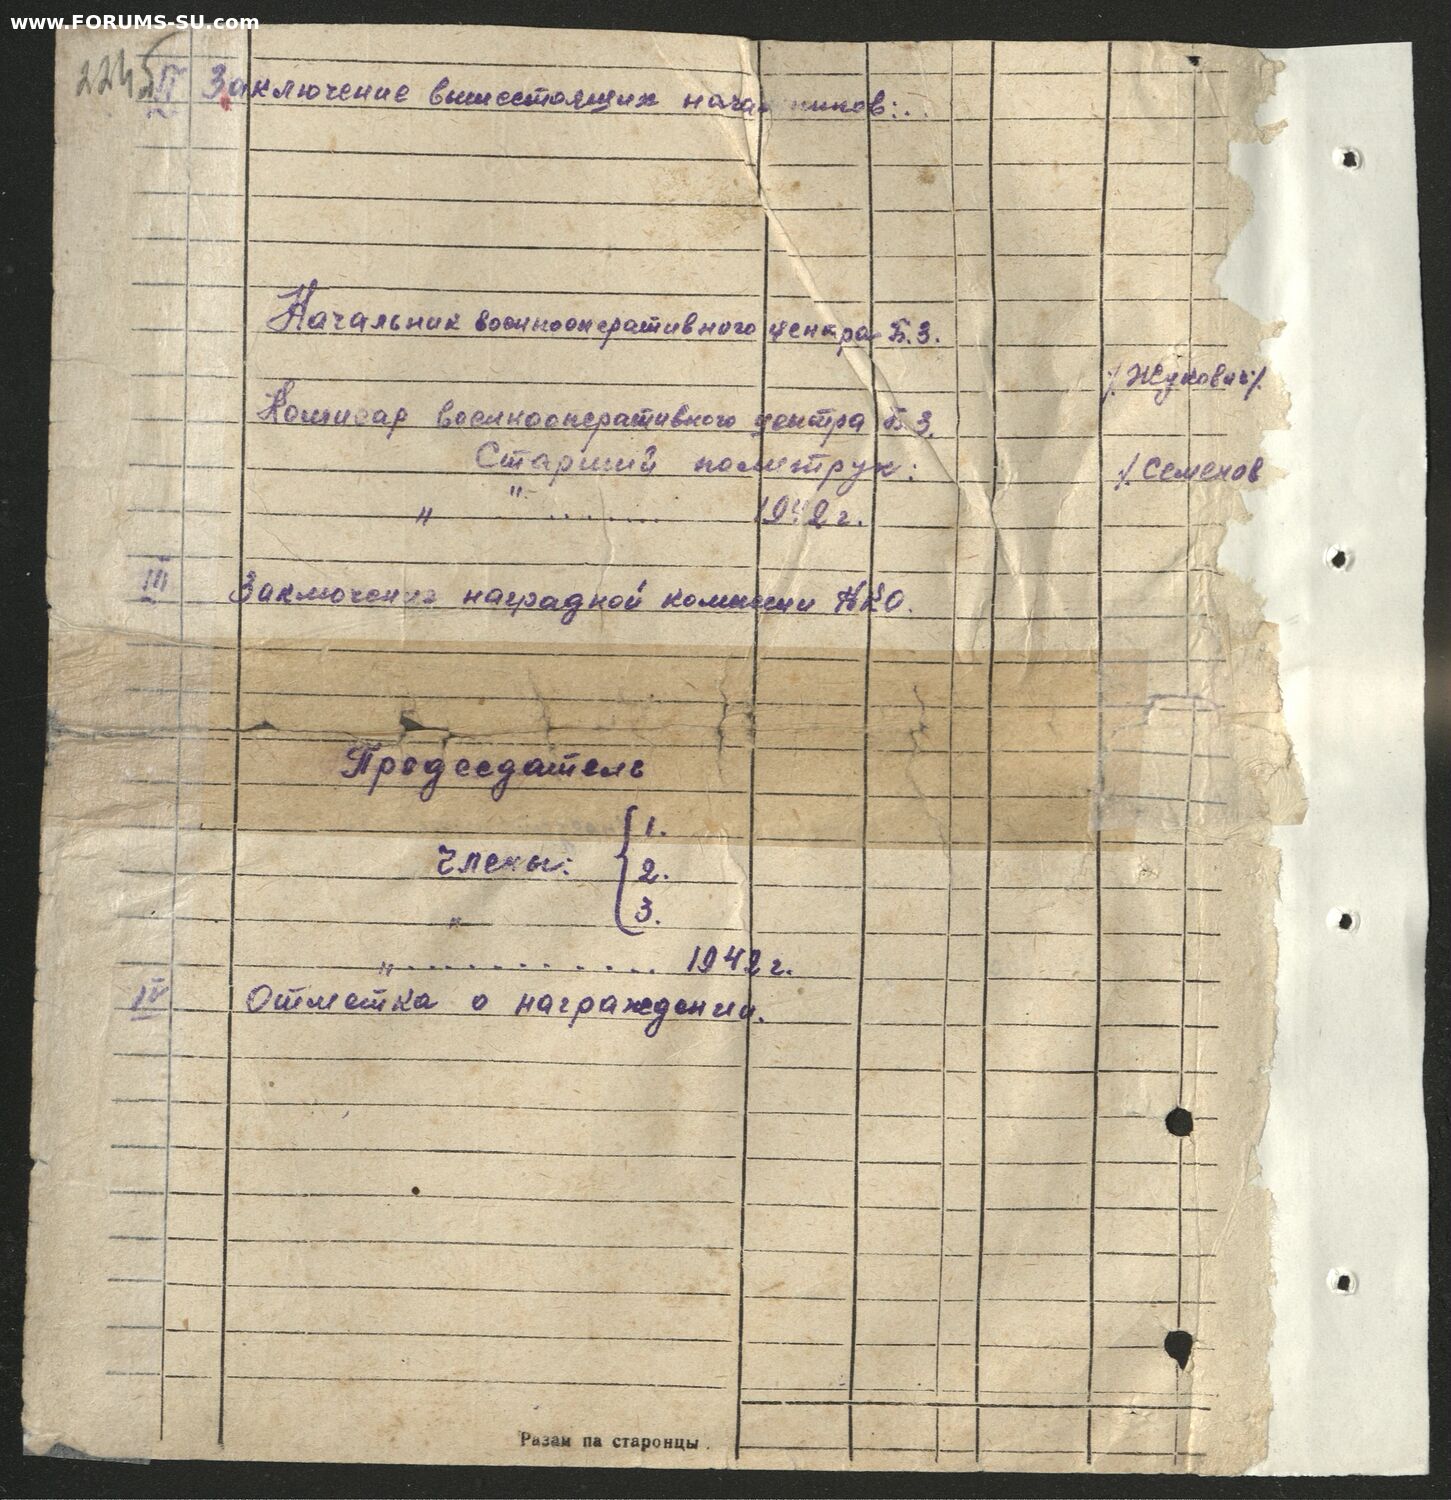 www.FORUMS-SU.com
2245
II Заключение вышестоящих начальников:..
Начальник военнооперативного центра Б.З.
/Жукович/.
Комисар военнооперативного центра Б.З.
Старший политрук:
/.Семенов
" " ....... 1942 г.
III Заключение наградной комисии НКО.
Председатель
Члены: 1.
2.
3.
" " ............ 1942 г.
IV Отметка о награждении.
Разам па старонцы